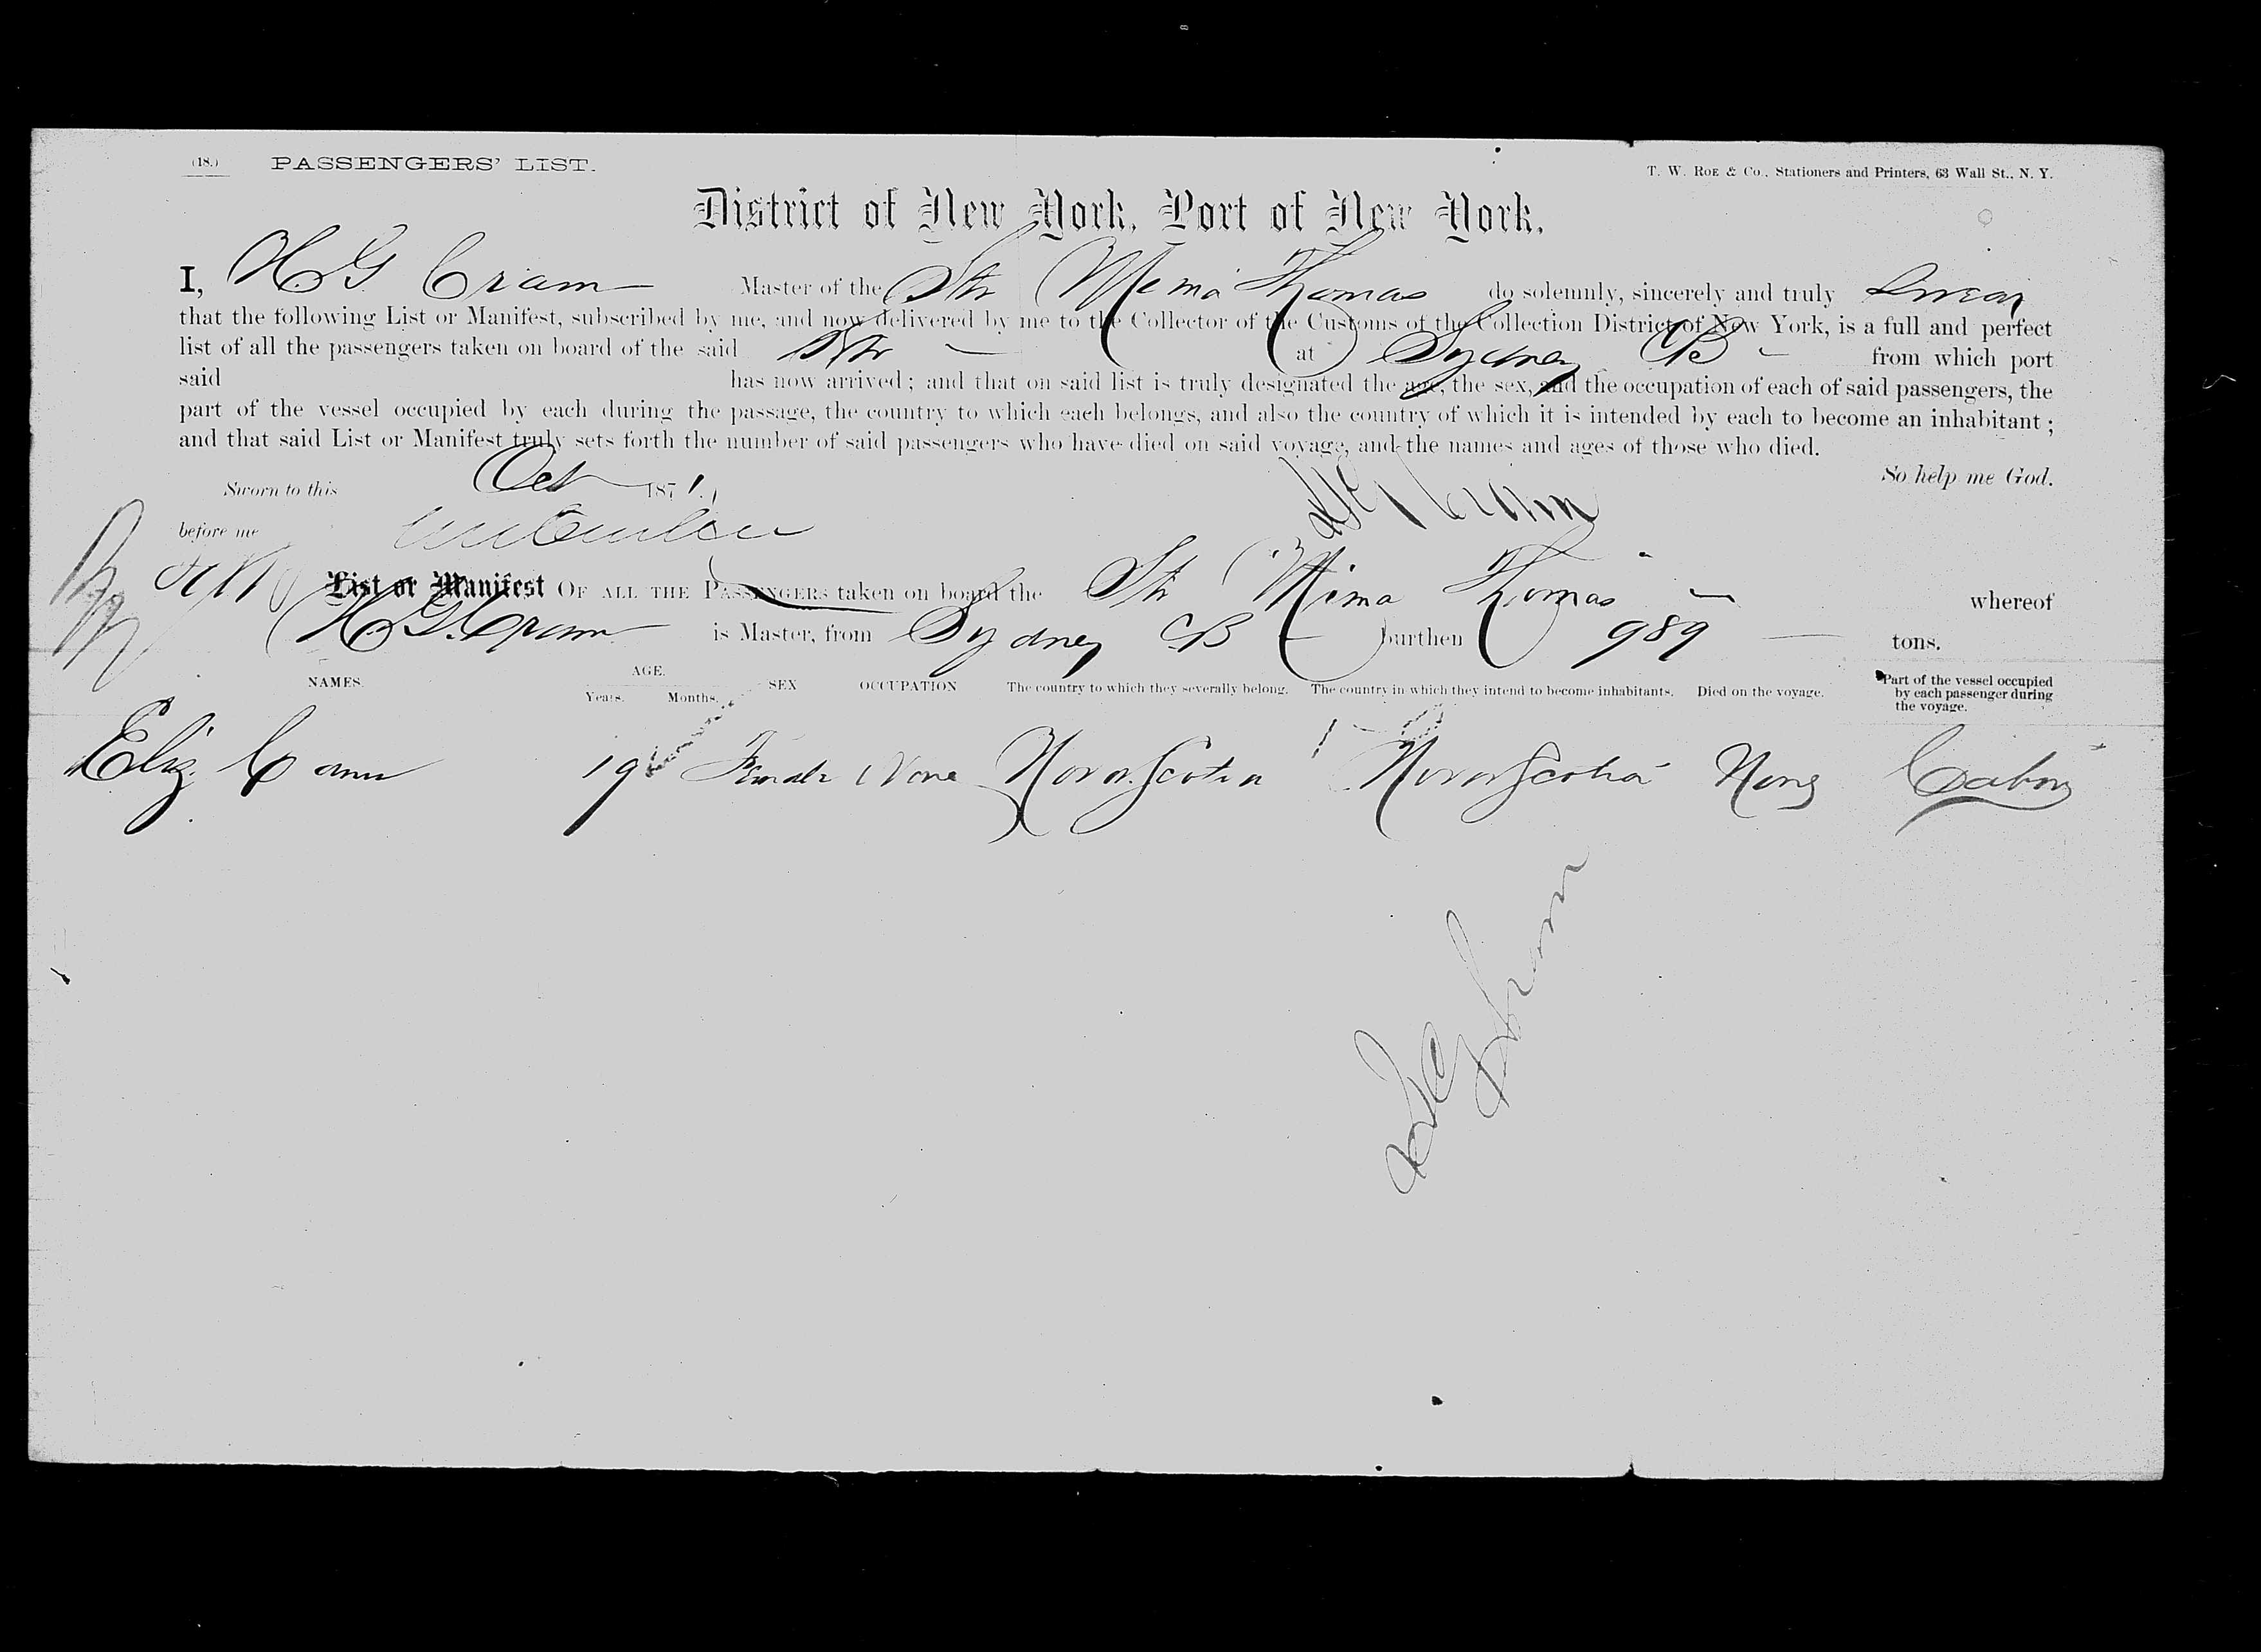 (18.) PASSENGERS' LIST. T. W. ROE & Co., Stationers and Printers, 63 Wall St., N. Y.
District of New York, Port of New York.
I, H G Cram Master of the Str Mima Thomas do solemnly, sincerely and truly swear
that the following List or Manifest, subscribed by me, and now delivered by me to the Collector of the Customs of the Collection District of New York, is a full and perfect
list of all the passengers taken on board of the said Str at Sydney CB from which port
said has now arrived; and that on said list is truly designated the age, the sex, and the occupation of each of said passengers, the
part of the vessel occupied by each during the passage, the country to which each belongs, and also the country of which it is intended by each to become an inhabitant;
and that said List or Manifest truly sets forth the number of said passengers who have died on said voyage, and the names and ages of those who died.
So help me God.
Sworn to this Oct 1871. H G Cram
before me
List or Manifest OF ALL THE PASSENGERS taken on board the Str Mima Thomas whereof
H. G. Cram is Master, from Sydney CB burthen 989 tons.
NAMES. AGE. Years. Months. SEX OCCUPATION The country to which they severally belong. The country in which they intend to become inhabitants. Died on the voyage. Part of the vessel occupied by each passenger during the voyage.
Eliz. Cann 19 Female None Nova Scotia Nova Scotia None Cabin
H G Cram